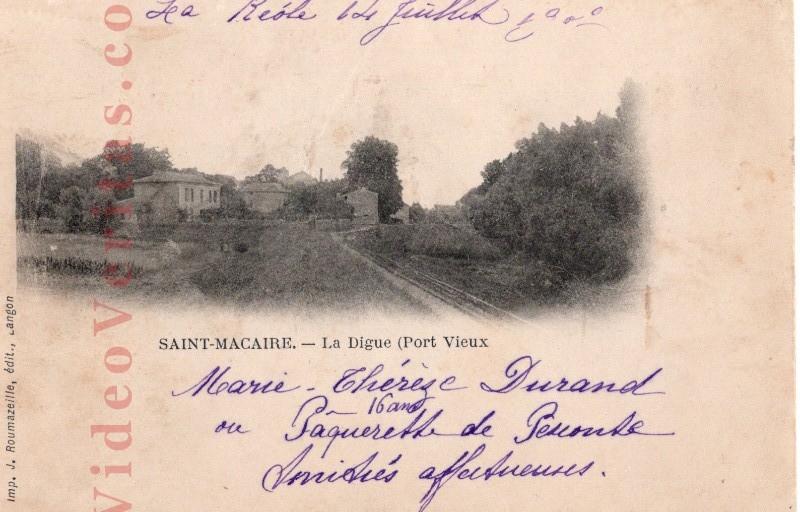 La Réole 14 Juillet 1900
SAINT-MACAIRE. — La Digue (Port Vieux
Marie-Thérèse Durand
16 ans
ou Pâquerette de
Amitiés affectueuses.
Imp. J. Roumazeille, édit., Langon
VideoVeritas.co